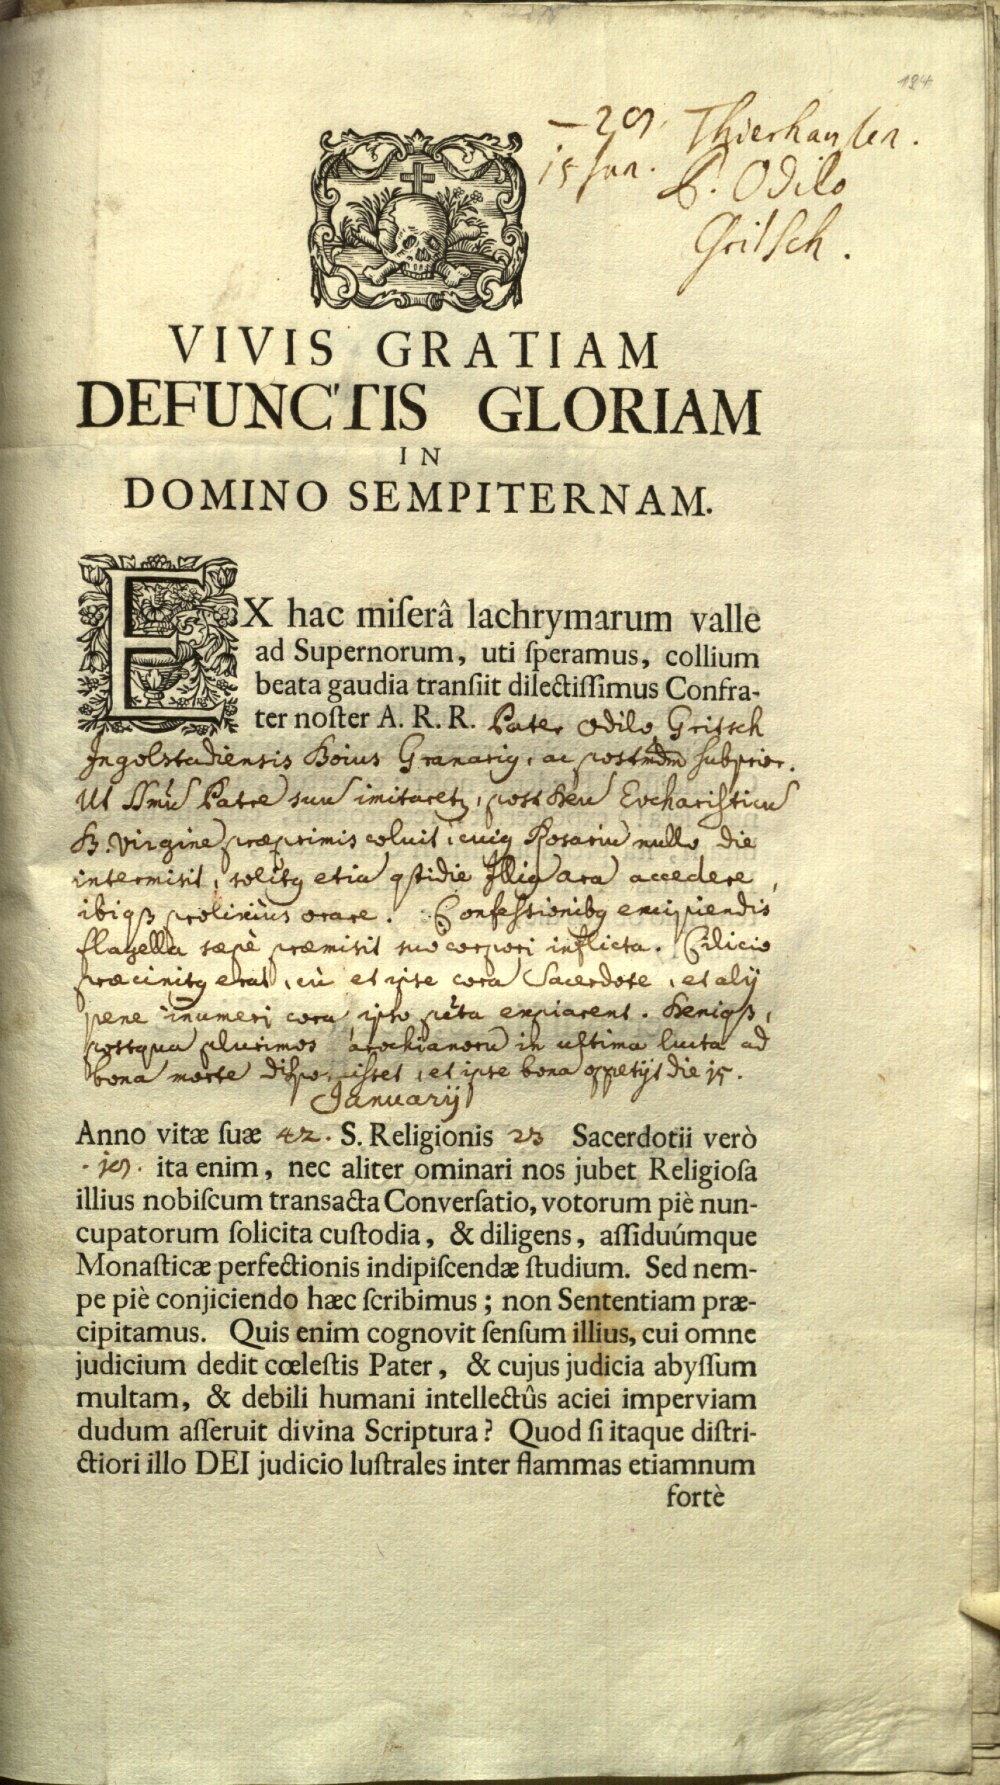 184
– 29. Thierhaupten.
15 Jan. P. Odilo
Gritsch.
VIVIS GRATIAM
DEFUNCTIS GLORIAM
IN
DOMINO SEMPITERNAM.
EX hac miserâ lachrymarum valle
ad Supernorum, uti speramus, collium
beata gaudia transiit dilectissimus Confra-
ter noster A. R. R. Pater Odilo Gritsch
Ingolstadiensis Boius Granariꝰ, ac postmodm Subprior.
Ut SSmū Patrē suū imitaretꝰ, post Deū Eucharisticū
B. Virginē præprimis coluit, cuiꝰ Rosariū nullo die
intermisit, solitꝰ etiā qtidie Illiꝰ arā accedere,
ibiqꝫ prolixiùs orare. Confessionibꝰ excipiendis
flagella sæpè præmisit suo corpori inflicta. Cilicio
præcinctꝰ erat, cū et ipse corā Sacerdote, et alij
pene inumeri corā ipso pctā expiarent. Deniqꝫ,
postquā plurimos arochianorū in ultima lucta ad
bonā mortē disposuisset, et ipse bonā oppetijt die 15.
Januarij
Anno vitæ suæ 42. S. Religionis 23 Sacerdotii verò
. 19. ita enim, nec aliter ominari nos jubet Religiosa
illius nobiscum transacta Conversatio, votorum piè nun-
cupatorum solicita custodia, & diligens, assiduúmque
Monasticæ perfectionis indipiscendæ studium. Sed nem-
pe piè conjiciendo hæc scribimus; non Sententiam præ-
cipitamus. Quis enim cognovit sensum illius, cui omne
judicium dedit cœlestis Pater, & cujus judicia abyssum
multam, & debili humani intellectûs aciei imperviam
dudum asseruit divina Scriptura? Quod si itaque distri-
ctiori illo DEI judicio lustrales inter flammas etiamnum
fortè